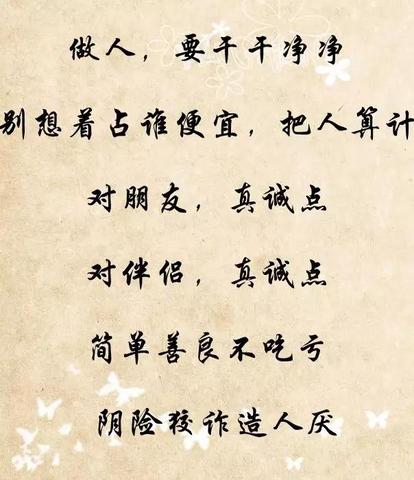 做人，要干干净净
别想着占谁便宜，把人算计
对朋友，真诚点
对伴侣，真诚点
简单善良不吃亏
阴险狡诈造人厌